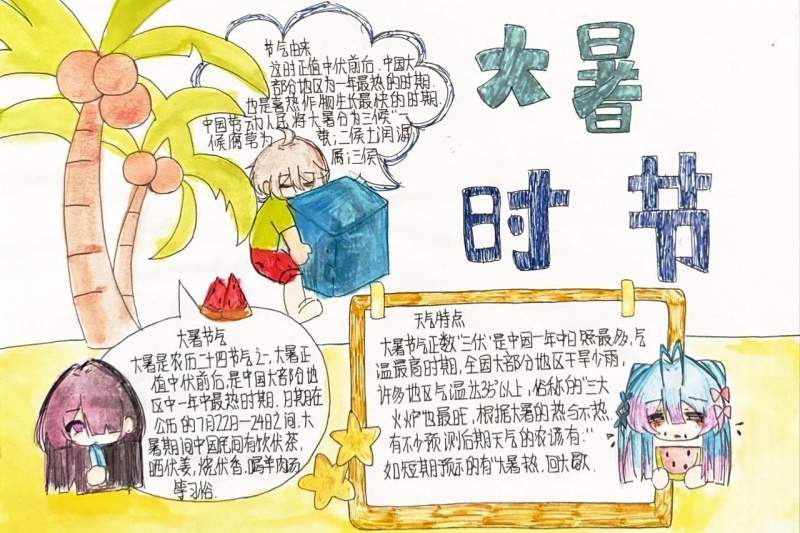 大暑
时节
节气由来
这时正值中伏前后，中国大
部分地区为一年最热的时期，
也是喜热作物生长最快的时期.
中国劳动人民将大暑分为三候"一
候腐草为 萤；二候土润溽
暑；三候
大暑节气
大暑是农历二十四节气之一，大暑正
值中伏前后，是中国大部分地
区中一年中最热时期.日期在
公历的7月22日—24日之间.大
暑期间中国民间有饮伏茶，
晒伏姜，烧伏香，喝羊肉汤
等习俗.
天气特点
大暑节气正数"三伏"是中国一年中日照最多，气
温最高时期，全国大部分地区干旱少雨，
许多地区气温达35°以上，俗称的"三大
火炉"也最旺，根据大暑的热与不热，
有不少预测后期天气的农谚有："
如短期预示的有"大暑热，回大歇.